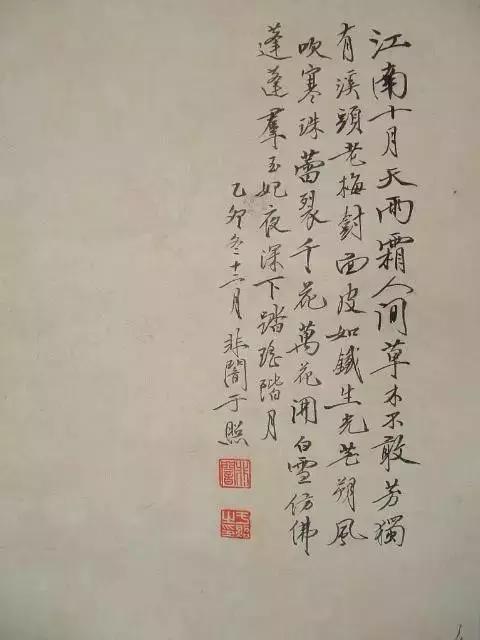 江南十月天雨霜人間草木不敢芳獨
有溪頭老梅樹面皮如鐵生光芒朔風
吹寒珠蕾裂千花萬花開白雪仿佛
蓬蓬羣玉妃夜深下踏瑤階月
乙卯冬十二月非闇于照
非闇
于照之印